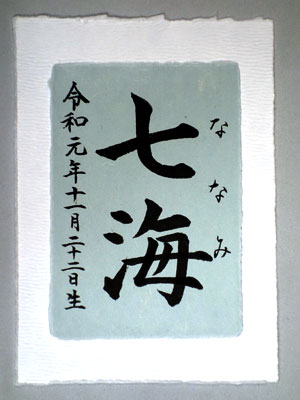 ななみ
七海
令和元年十一月二十二日生